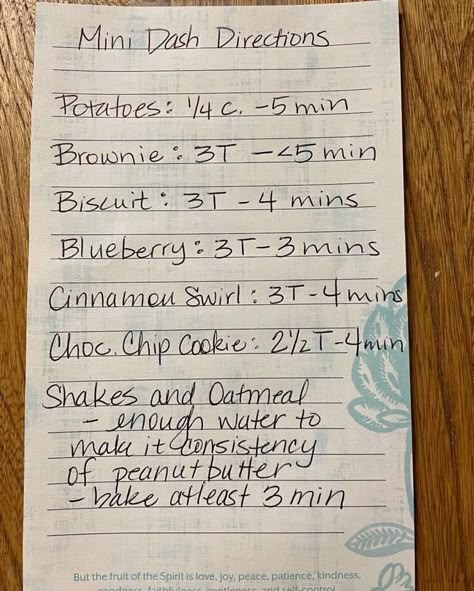 Mini Dash Directions
Potatoes: 1/4 c. - 5 min
Brownie: 3T - <5 min
Biscuit: 3T - 4 mins
Blueberry: 3T - 3 mins
Cinnamon Swirl: 3T - 4 mins
Choc. Chip Cookie: 2 1/2 T - 4 min
Shakes and Oatmeal
- enough water to
make it consistency
of peanut butter
- bake atleast 3 min
But the fruit of the Spirit is love, joy, peace, patience, kindness,
goodness, faithfulness, gentleness, and self-control.